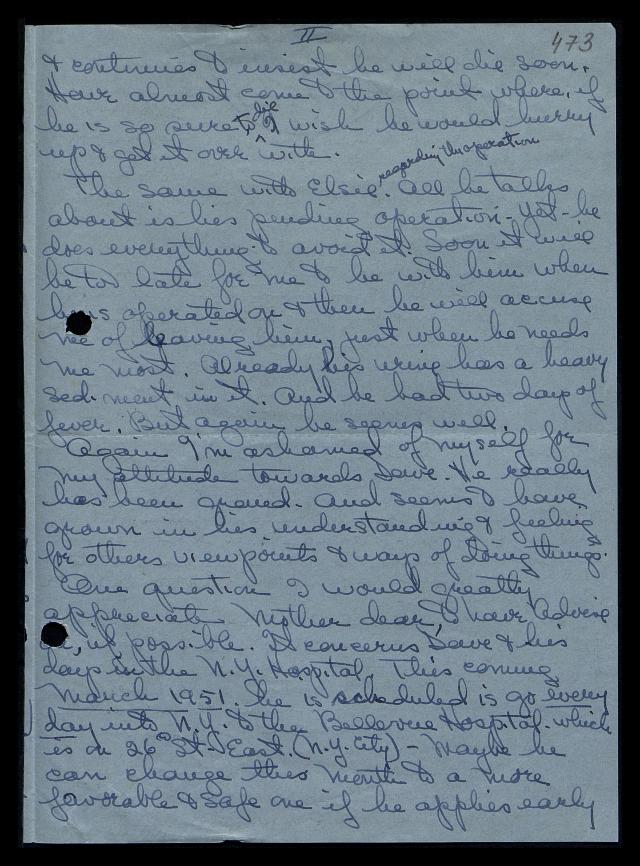 II
473
& continues to insist he will die soon.
Have almost come to the point where, if
he is so sure to die I wish he would hurry
up & get it over with.
regarding the operation
The same with Elsie. All he talks
about is his pending operation - yet - he
does everything to avoid it. Soon it will
be too late for me to be with him when
he is operated on & then he will accuse
me of leaving him, just when he needs
me most. Already his urine has a heavy
sediment in it. And he had two days of
fever. But again he seems well.
Again I'm ashamed of myself for
my attitude towards Dave. He really
has been grand. And seems to have
grown in his understanding & feeling
for others viewpoints & ways of doing things.
One question I would greatly
appreciate Mother dear, to have advise
on, if possible. It concerns Dave & his
days in the N.Y. Hospital. This coming
March 1951. he is scheduled is go every
day into N.Y. to the Bellevue Hospital. which
is on 26th St. East. (N.Y. City) - Maybe he
can change this month to a more
favorable & safe one if he applies early